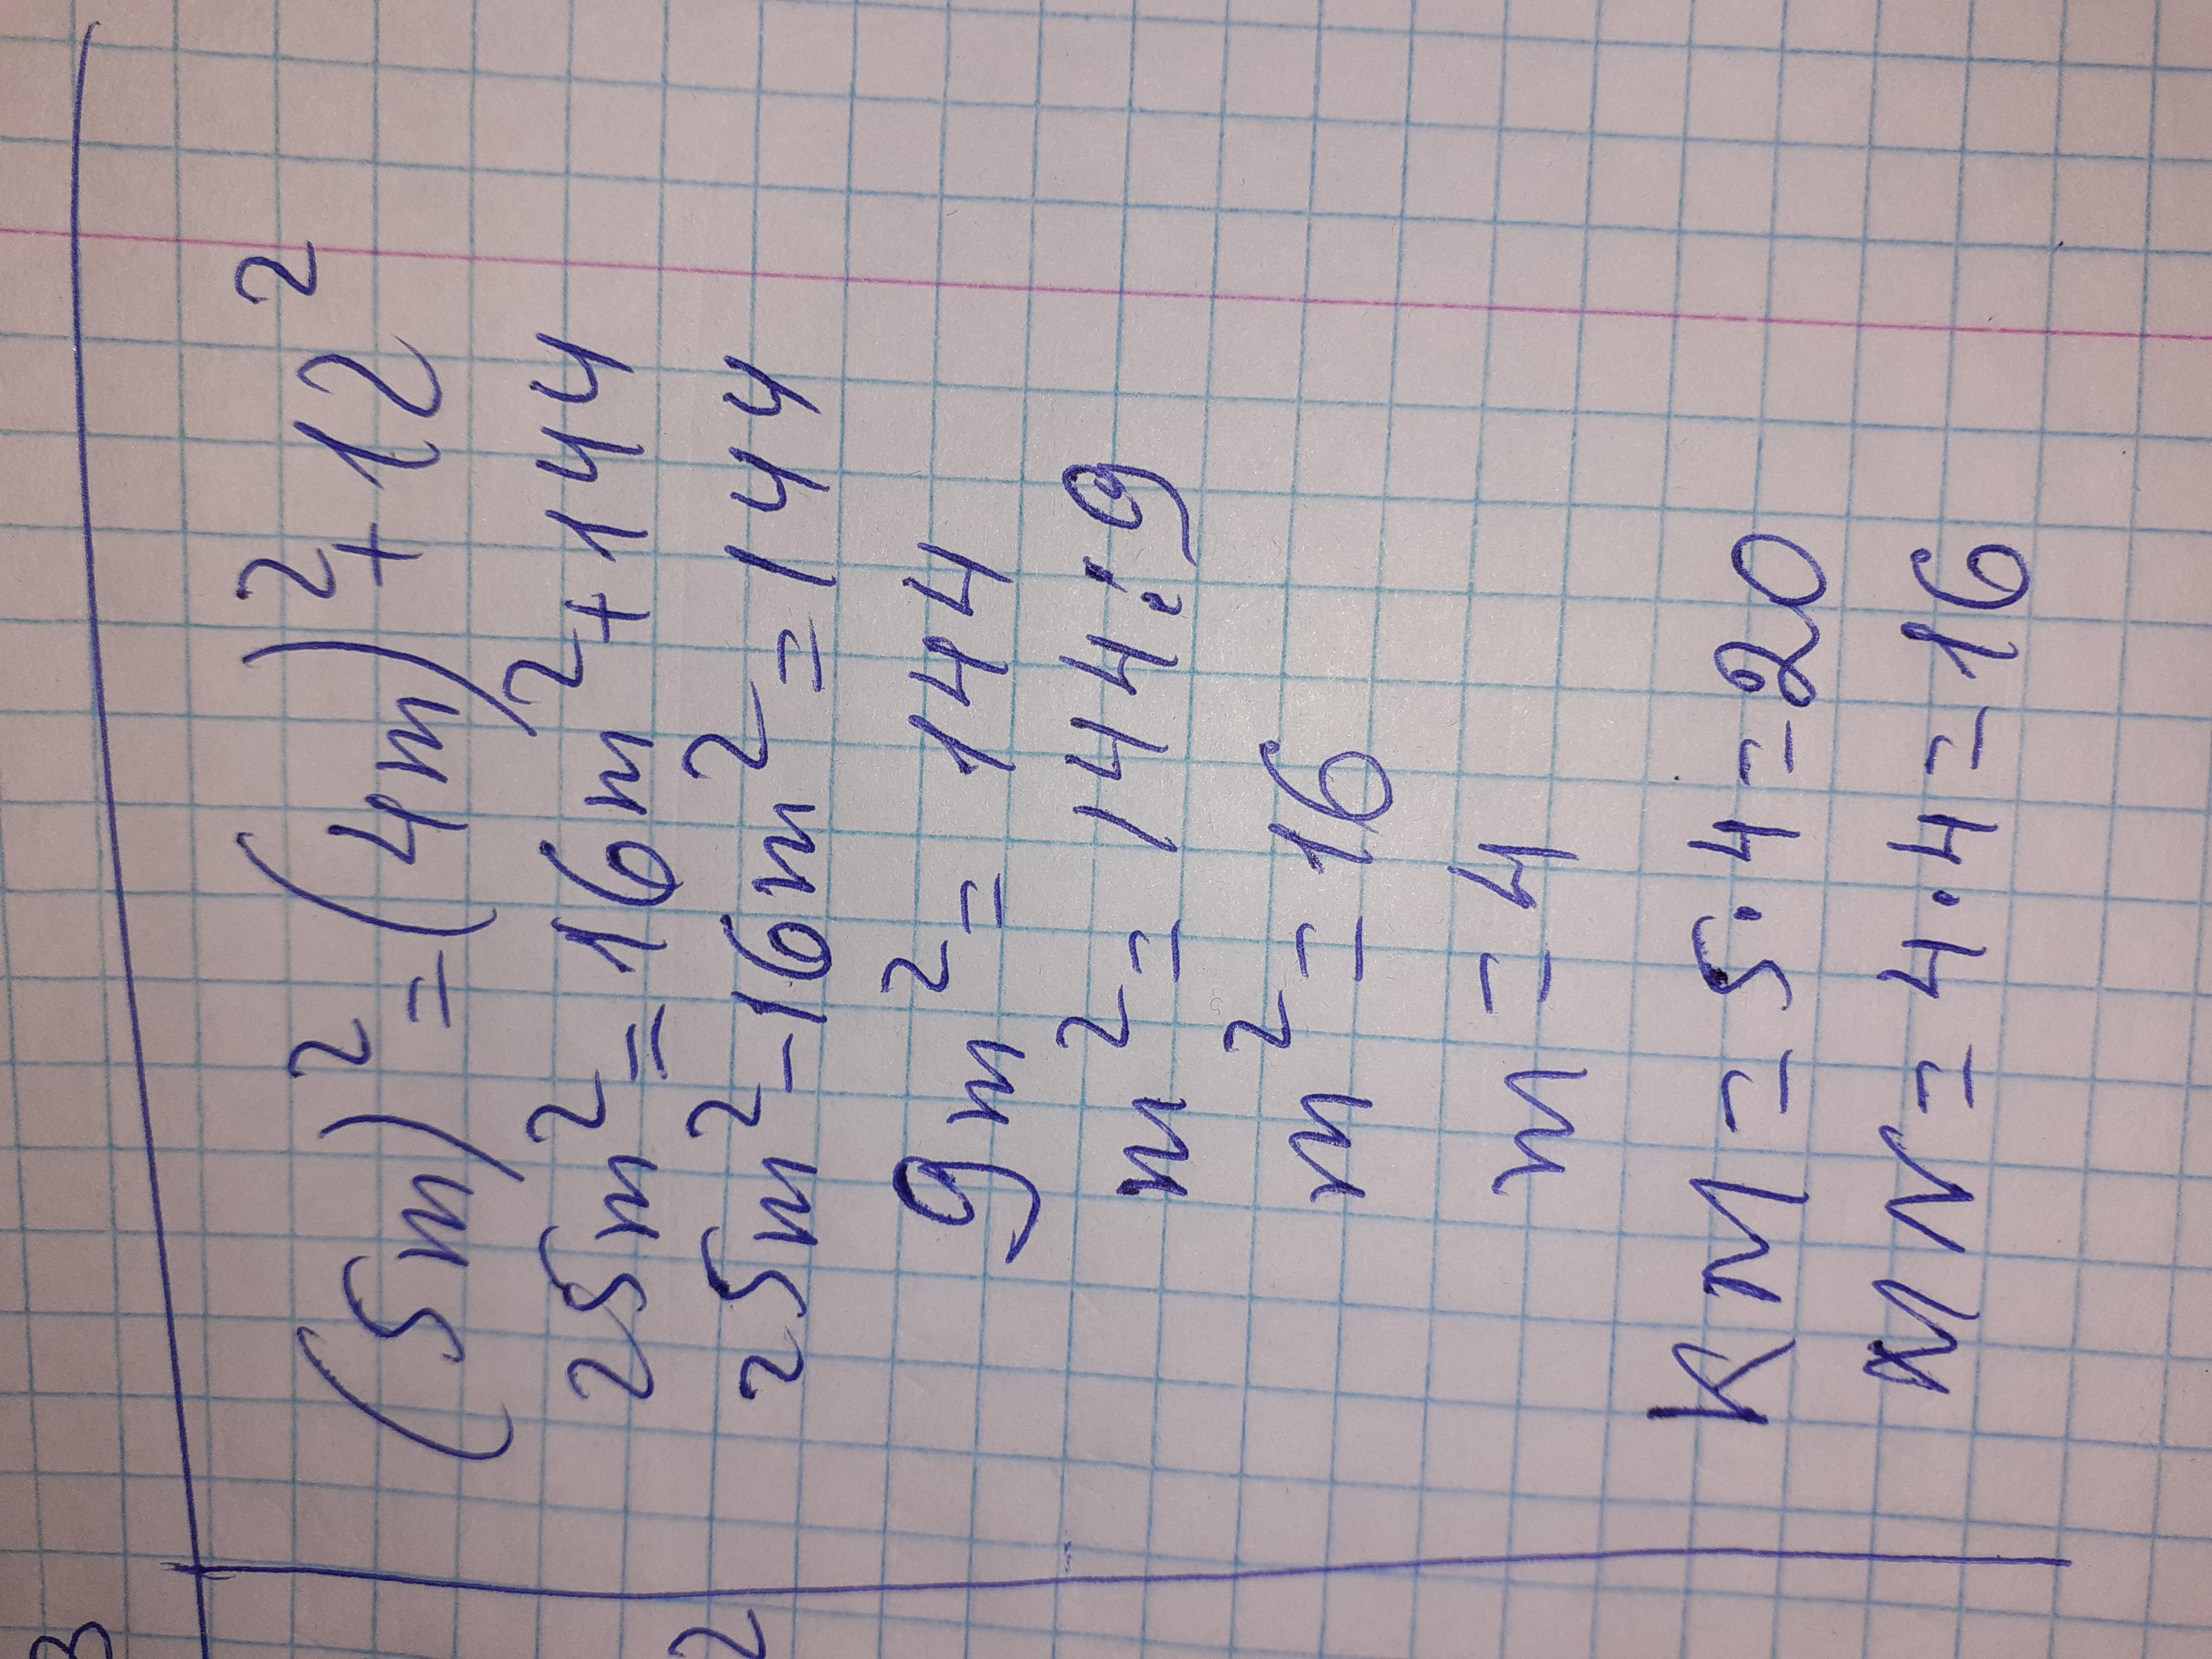 (5m)² = (4m)² + 12²
25m² = 16m² + 144
25m² - 16m² = 144
9m² = 144
m² = 144 : 9
m² = 16
m = 4
KM = 5 · 4 = 20
MN = 4 · 4 = 16
3
2